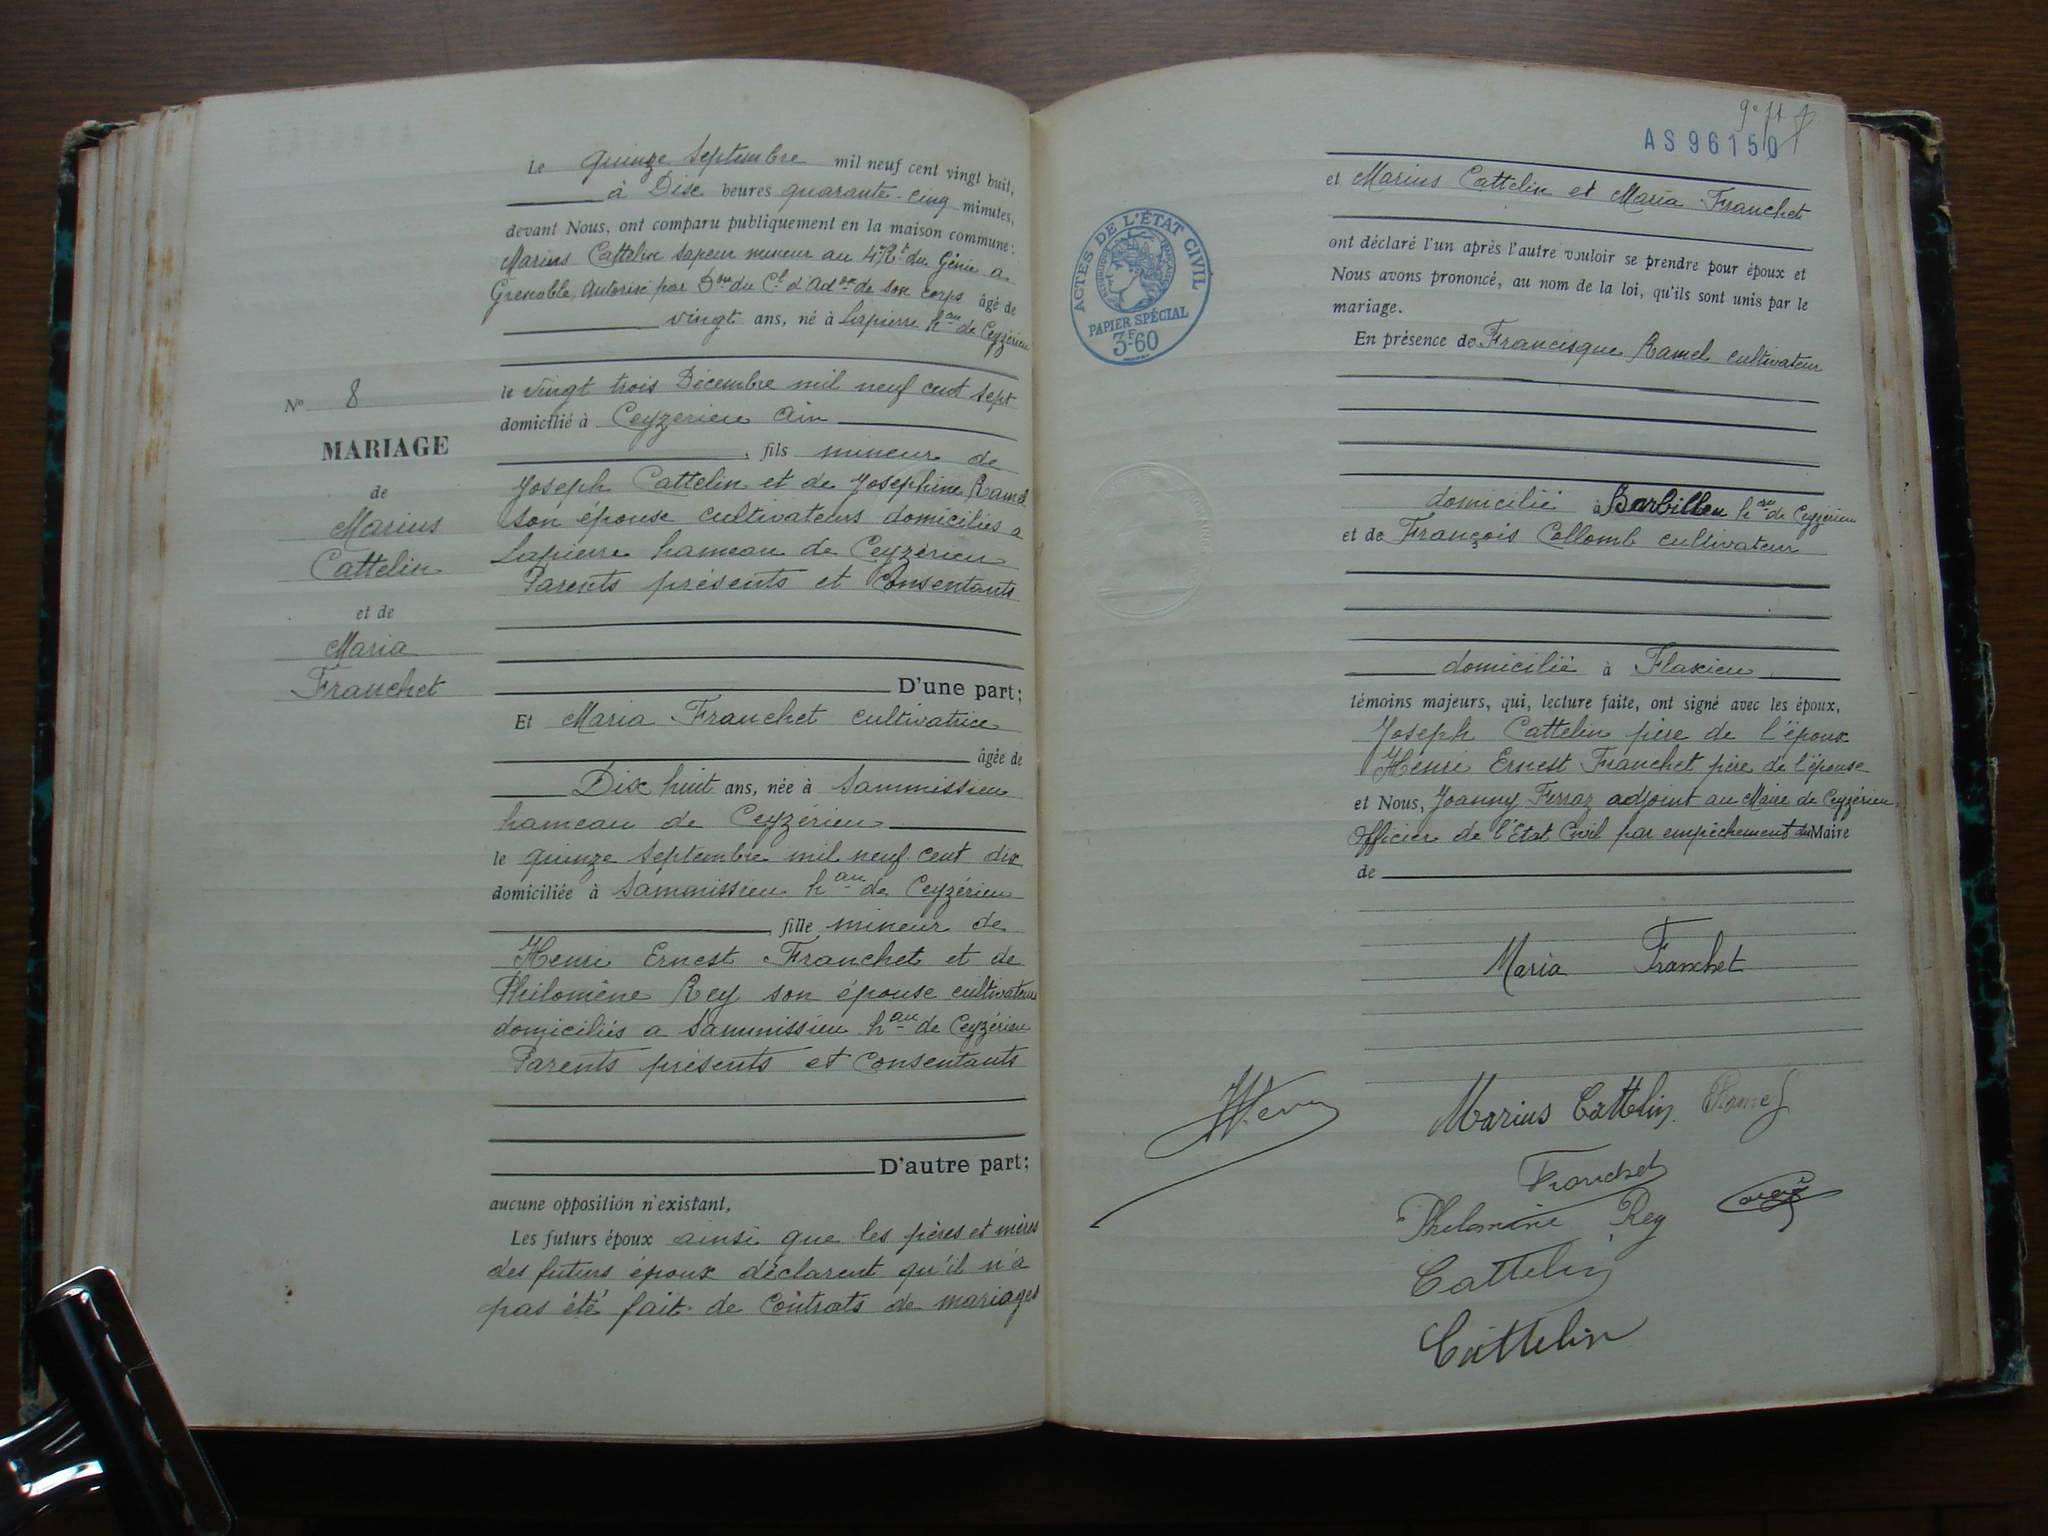 Le quinze Septembre mil neuf cent vingt huit,
à Dix heures quarante-cinq minutes,
devant Nous, ont comparu publiquement en la maison commune:
Marius Cattelin Sapeur mineur au 4e Rt du Génie a
Grenoble, autorisé par Don du Cl d'Adon de son corps âgé de
vingt ans, né à Lapierre hau de Ceyzérieu
le vingt trois Décembre mil neuf cent sept
domicilié à Ceyzerieu Ain
, fils mineur de
Joseph Cattelin et de Joséphine Ramel
son épouse cultivateurs domiciliés a
Lapierre hameau de Ceyzérieu
Parents présents et Consentants
D'une part;
Et Maria Franchet cultivatrice
âgée de
Dix huit ans, née à Sammissieu
hameau de Ceyzérieu
le quinze Septembre mil neuf cent dix
domiciliée à Sammissieu hau de Ceyzérieu
, fille mineur de
Henri Ernest Franchet et de
Philomène Rey son épouse cultivateurs
domiciliés a Sammissieu hau de Ceyzérieu
Parents présents et Consentants
D'autre part;
aucune opposition n'existant,
Les futurs époux ainsi que les pères et mères
des futurs époux déclarent qu'il n'a
pas été fait de Contrats de mariages
No 8
MARIAGE
de
Marius
Cattelin
et de
Maria
Franchet
AS96150
et Marius Cattelin et Maria Franchet
ont déclaré l'un après l'autre vouloir se prendre pour époux et
Nous avons prononcé, au nom de la loi, qu'ils sont unis par le
mariage.
En présence de Francisque Ramel cultivateur
domicilié à Barbilleu hau de Ceyzérieu
et de François Collomb cultivateur
domicilié à Flaxieu
témoins majeurs, qui, lecture faite, ont signé avec les époux,
Joseph Cattelin père de l'époux
Henri Ernest Franchet père de l'épouse
et Nous, Joanny Ferraz adjoint au Maire de Ceyzérieu
Officier de l'Etat Civil par empêchement du Maire
de
ACTES DE L'ÉTAT CIVIL
PAPIER SPÉCIAL
3F60
Maria Franchet
Marius Cattelin Ramel
Franchet
Philomène Rey
Cattelin
Cattelin